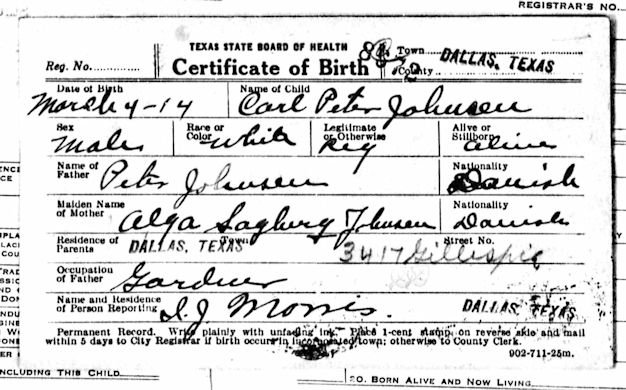 REGISTRAR'S NO...
TEXAS STATE BOARD OF HEALTH
Reg. No. Certificate of Birth Town County DALLAS, TEXAS
Date of Birth Name of Child
March 4-14 Carl Peter Johnsen
Sex Race or Color Legitimate or Otherwise Alive or Stillborn
Male White Leg Alive
Name of Father Nationality
Peter Johnsen Danish
Maiden Name of Mother Nationality
Alga Johnsen Danish
Residence of Parents DALLAS, TEXAS Town 3417 Gillespie Street No.
Occupation of Father
Gardner
Name and Residence of Person Reporting Morris. DALLAS, TEXAS
Permanent Record. Write plainly with unfading ink. Place 1-cent stamp on reverse side and mail
within 5 days to City Registrar if birth occurs in incorporated town; otherwise to County Clerk.
902-711-25m.
INCLUDING THIS CHILD
20. BORN ALIVE AND NOW LIVING